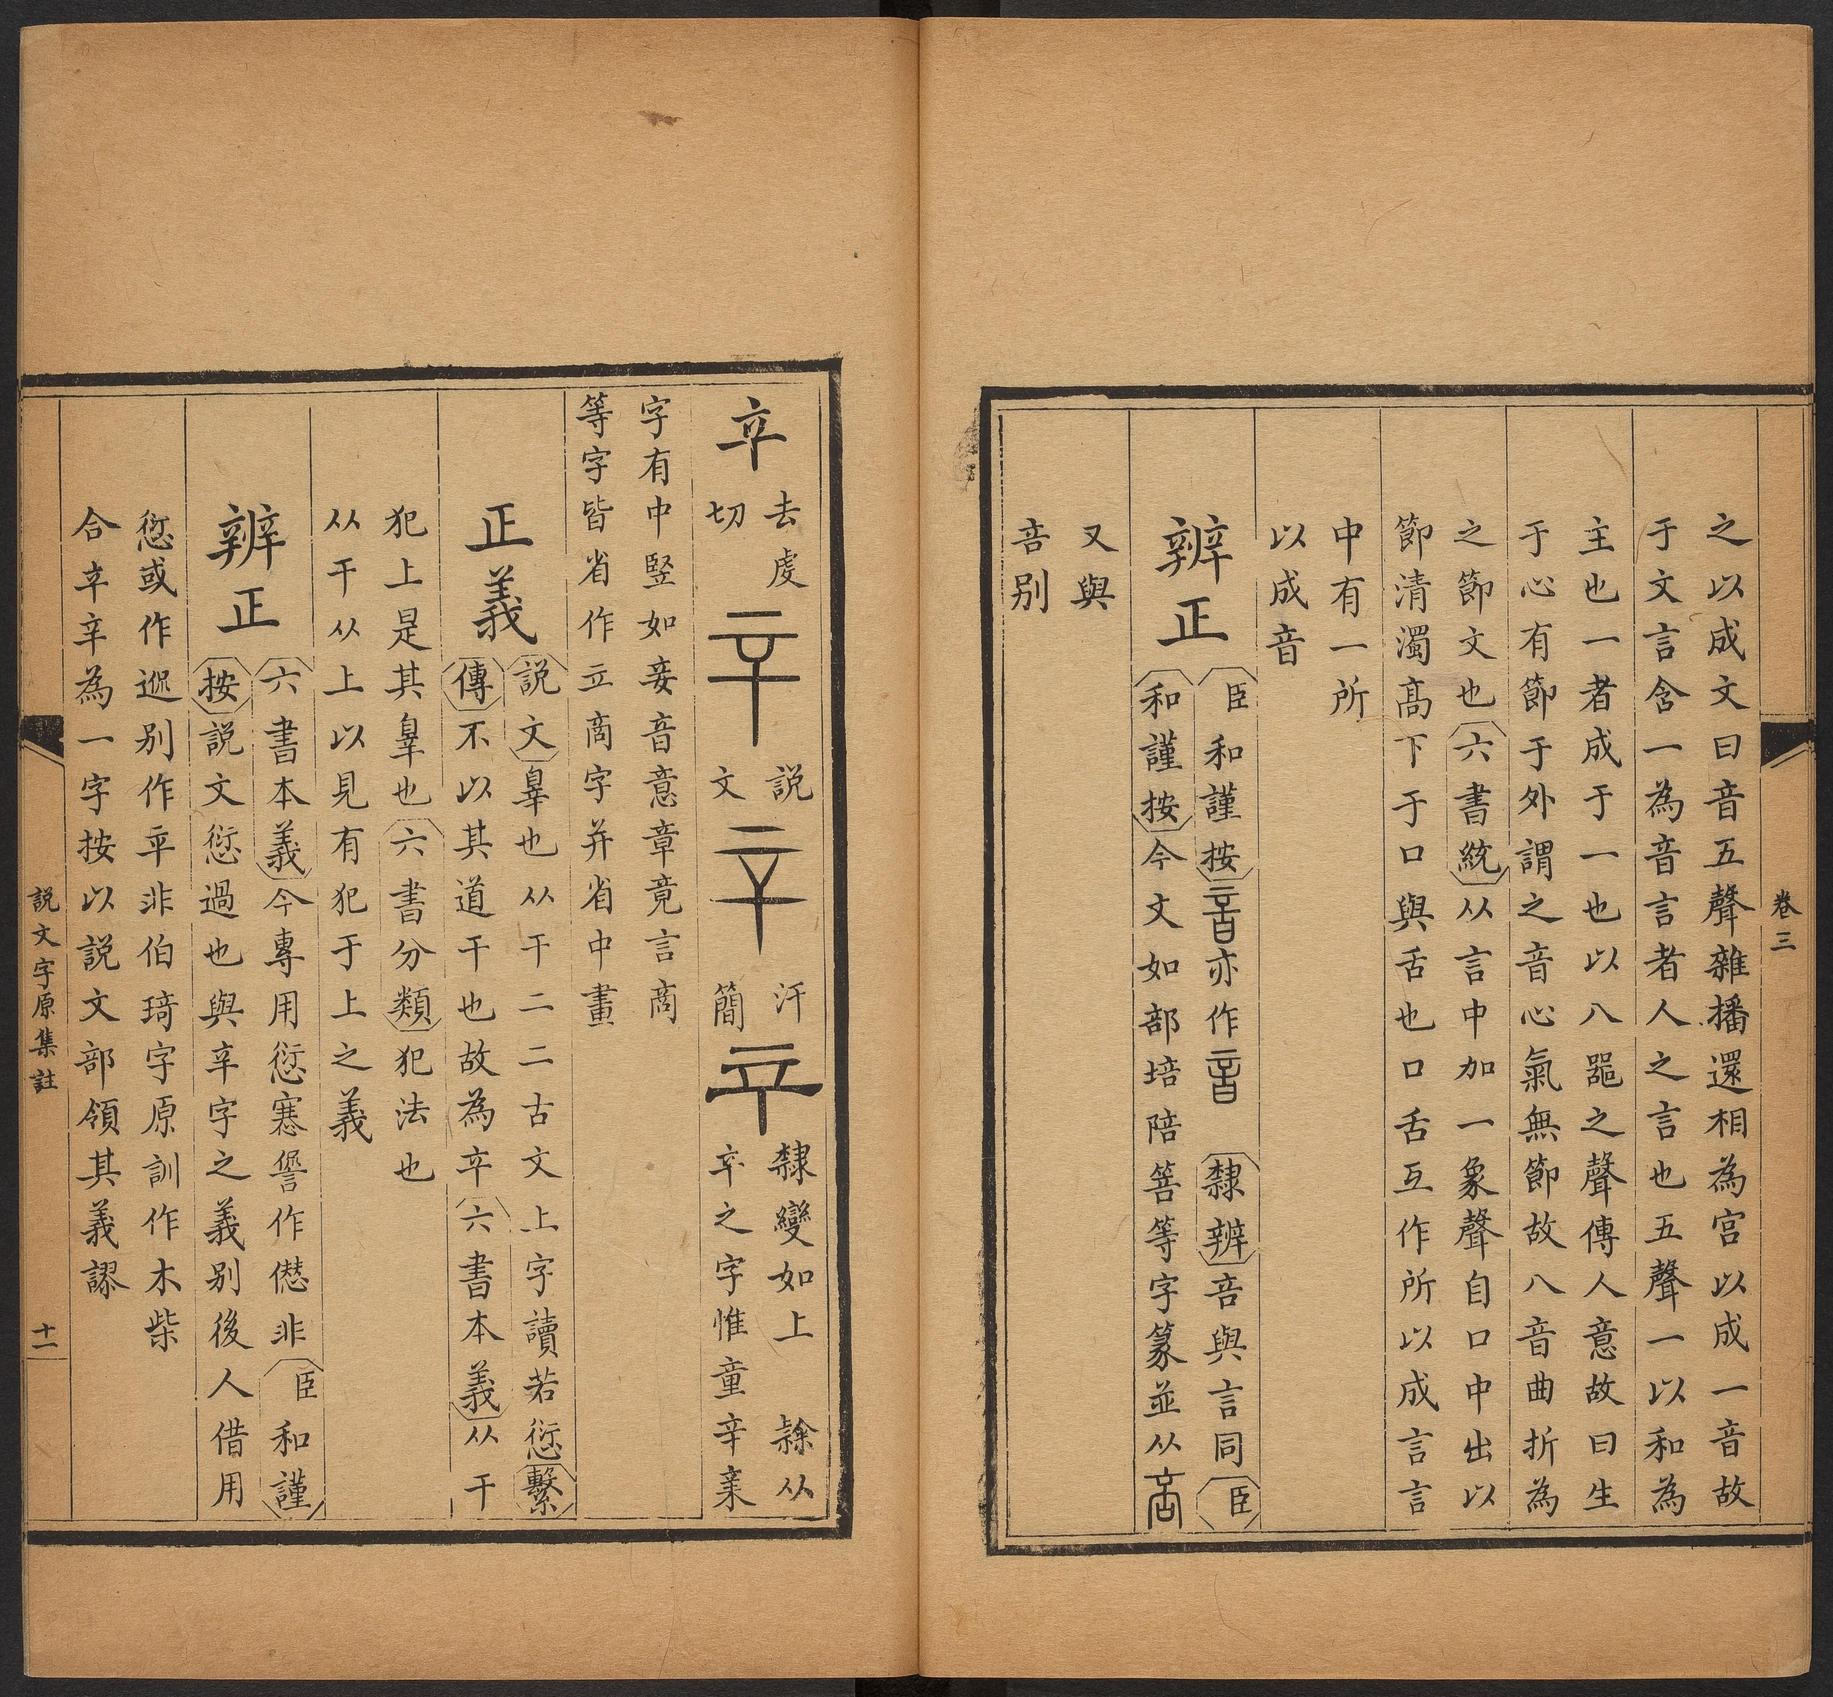 卷三
之以成文曰音五聲雜播還相為宮以成一音故
于文言含一為音言者人之言也五聲一以和為
主也一者成于一也以八噐之聲傳人意故曰生
于心有節于外謂之音心氣無節故八音曲折為
之節文也六書統从言中加一象聲自口中出以
節清濁高下于口與舌也口舌互作所以成言言
中有一所
以成音
辨正
臣和謹按亦作
隸辨咅與言同臣
和謹按今文如部培陪菩等字篆並从
又與
咅别
䇂
去虔
切
說
文
汗
簡
隸變如上
䇂之字惟童辛亲
隸从
字有中竪如妾音意章竟言商
等字皆省作立商字并省中畫
正義
説文辠也从干二二古文上字讀若愆繫
傳不以其道干也故為䇂六書本義从干
犯上是其辠也六書分類犯法也
从干从上以見有犯于上之義
辨正
六書本義今專用愆寋諐作僁非臣和謹
按説文愆過也與䇂字之義别後人借用
愆或作𨓍别作䇂非伯琦字原訓作木柴
合䇂辛為一字按以説文部領其義謬
説文字原集註
十一